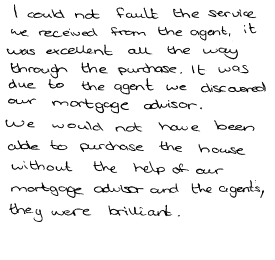 I could not fault the service
we received from the agent, it
was excellent all the way
through the purchase. It was
due to the agent we discovered
our mortgage advisor.
We would not have been
able to purchase the house
without the help of our
mortgage advisor and the agents,
they were brilliant.